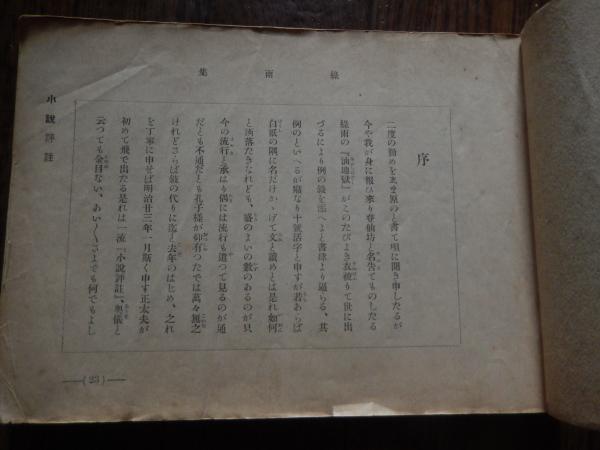 集雨綠
小說評註
序
二度の勤めをあま原のと書て唄に聞き申したるが
今や我が身に報ひ來り登仙坊と名告てものしたる
綠雨の『油地獄』がこのたびよき衣被りて世に出
づるにより例の跋を添へよと書肆より逼らる、其
例のといへるが癪なり十號活字と申すが若あらば
白紙の隅に名だけかゝげて文と讀めとは是れ如何
と洒落たきなれども、盛のよいの數のあるのが只
今の流行と承はり偶には流行も追つて見るのが通
だとも不通だとも孔子樣が仰有つたでは萬々無之
けれどさらば跋の代りに迄と去年のはじめ、之れ
を丁寧に申せば明治廿三年一月斯く申す正太夫が
初めて飛で出たる是れは一流『小說評註』、奧儀と
云つても金目ない、あい〳〵さよでも何でもよし
(23)